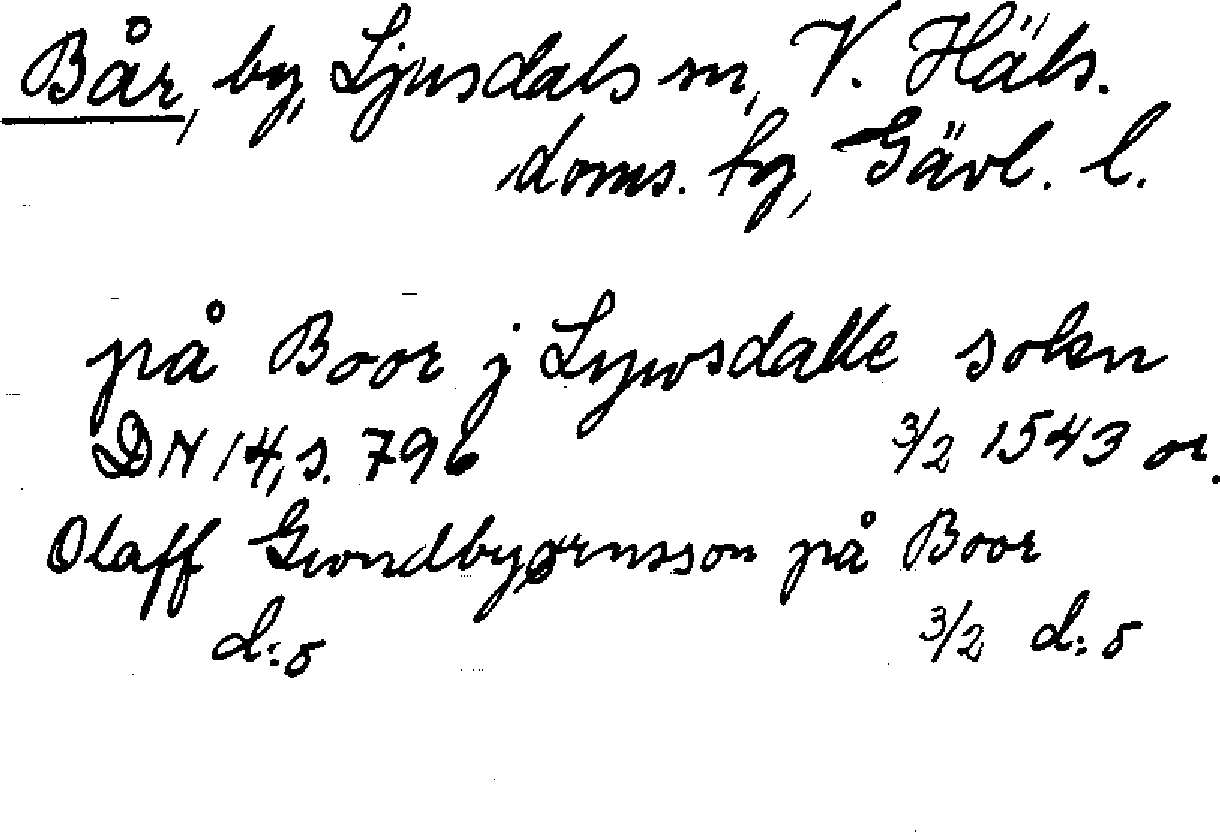 Bår, by, Ljusdals sn, V. Häls.
doms. fg, Gävl. l.
på Boor j Lywsdalle sokn
DN 14, s. 796 3/2 1543 or.
Olaff Gwndbyørnsson på Boor
d:o 3/2 d:o